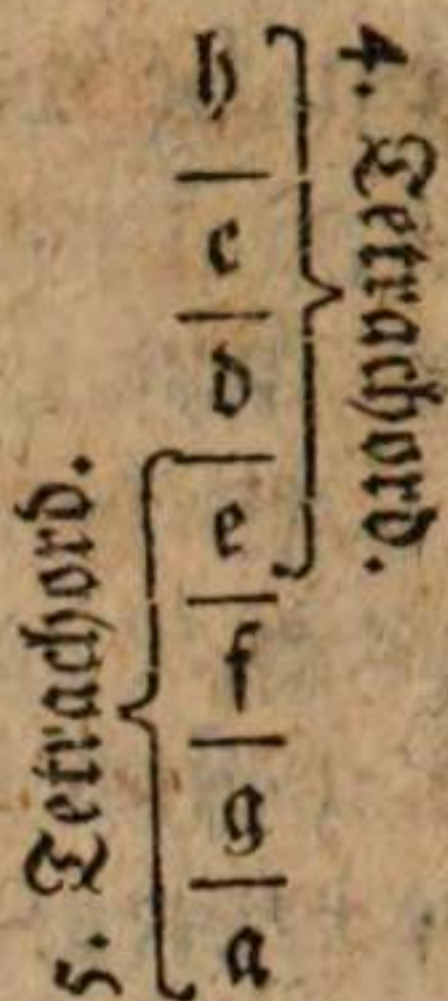 4. Tetrachord.
h | c | d | e | f | g | a
5. Tetrachord.